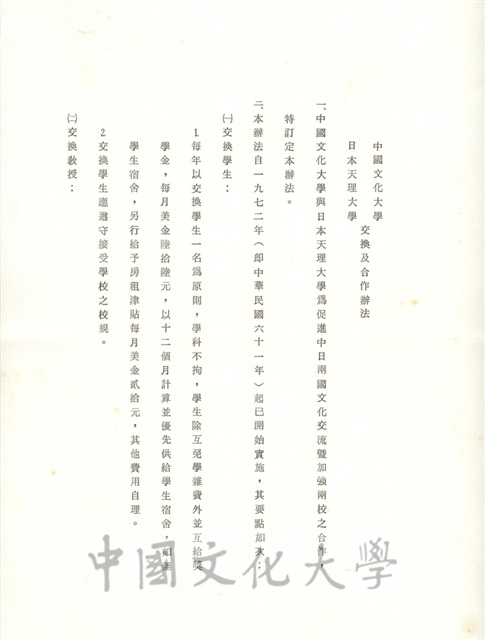 中國文化大學
日本天理大學
交換及合作辦法
一、中國文化大學與日本天理大學為促進中日兩國文化交流暨加強兩校之合作，
特訂定本辦法。
二、本辦法自一九七二年（即中華民國六十一年）起已開始實施，其要點如次：
㈠交換學生：
1.每年以交換學生一名為原則，學科不拘，學生除互免學雜費外並互給獎
學金，每月美金陸拾陸元，以十二個月計算並優先供給學生宿舍，如無
學生宿舍，另行給予房租津貼每月美金貳拾元，其他費用自理。
2.交換學生應遵守接受學校之校規。
㈡交換教授：
中國文化大學